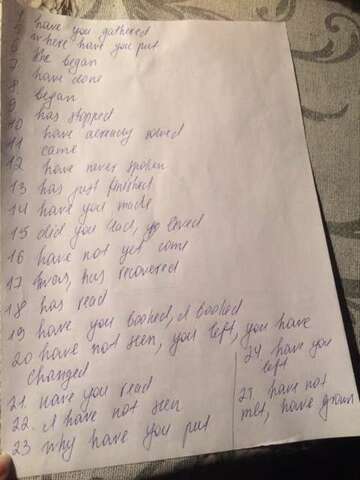 have you gathered
5 where have you put
6 he began
7 have done
8 began
9 has stopped
10 have already solved
11 came
12 have never spoken
13 has just finished
14 have you made
15 did you lead, loved
16 have not yet come
17 has recovered
18 has read
19 have you booked, I booked
20 have not seen, you left, you have
changed
21. Have you read
22. I have not seen
23 why have you put
24 have you
left
25. have not
met, have grown